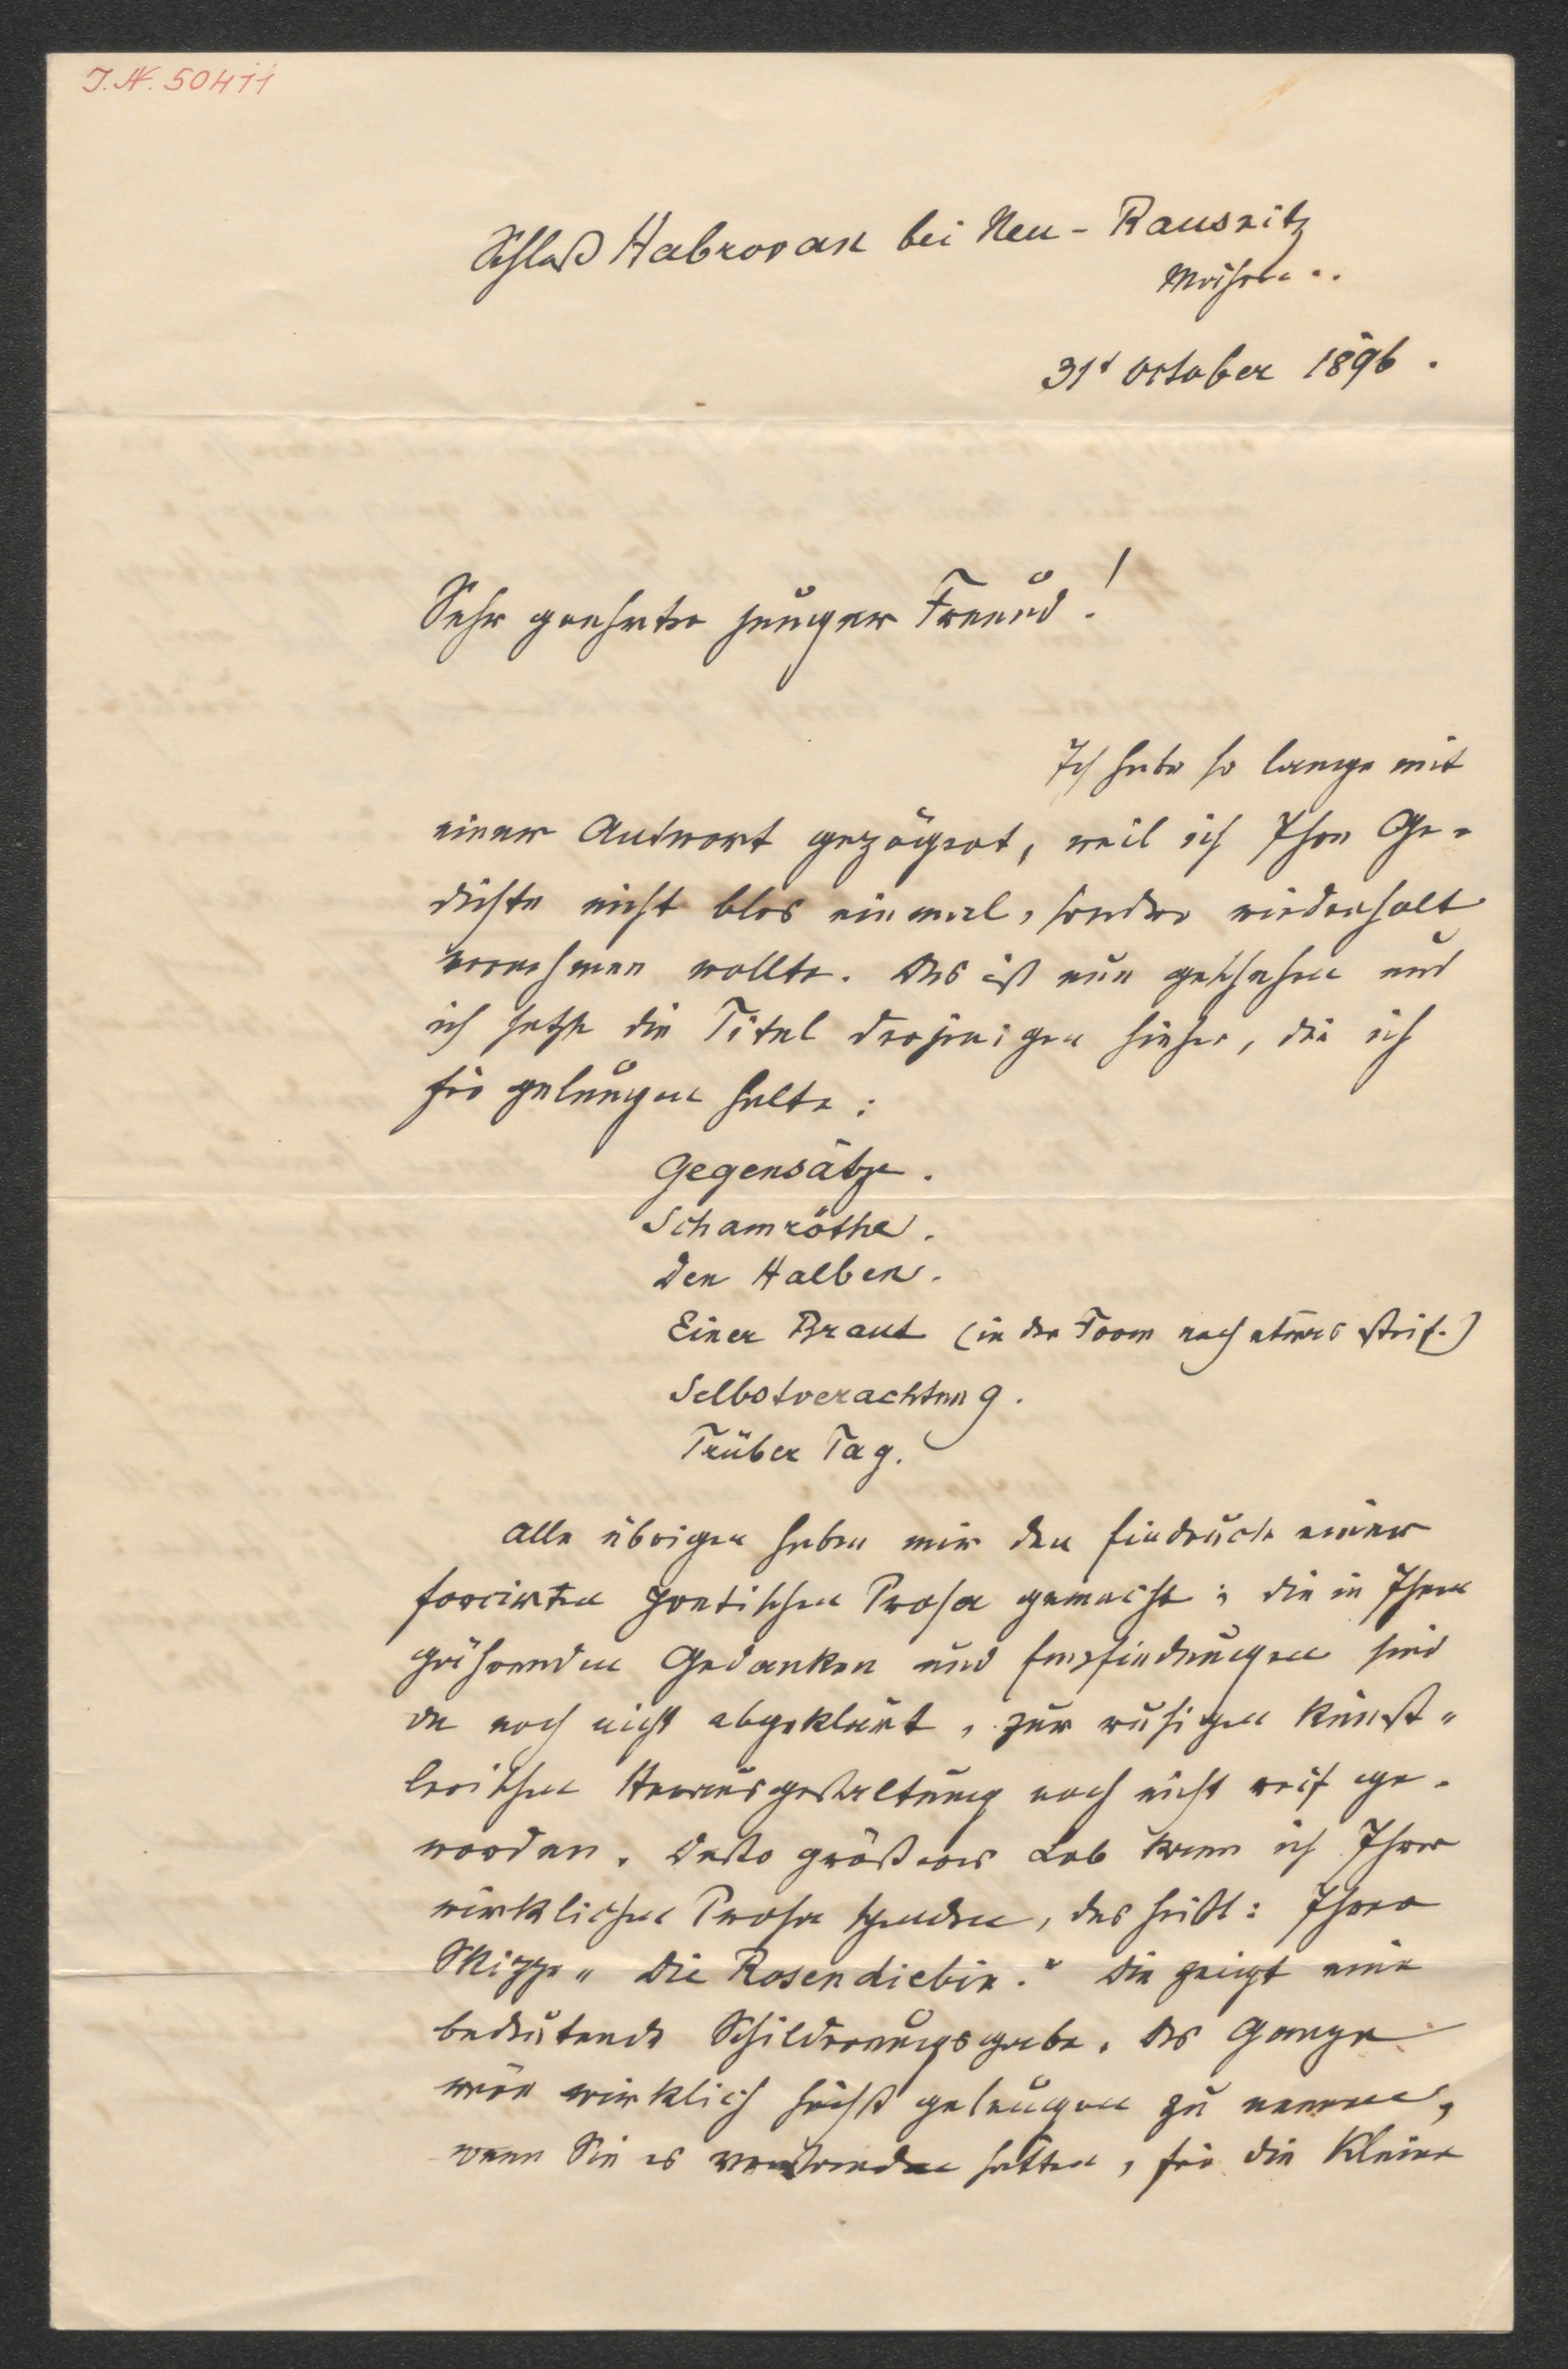 J.N. 50411
Schloß Habrovan bei Neu-Rausnitz
Mähren.
31t October 1896.
Sehr geehrter junger Freund!
Ich habe so lange mit
einer Antwort gezögert, weil ich Ihre Ge-
dichte nicht blos einmal, sondern wiederholt
vornehmen wollte. Das ist nun geschehen und
ich setze die Titel derjenigen hieher, die ich
für gelungen halte:
Gegensätze.
Schamröthe.
Den Halben.
Einer Braut (in der Form noch etwas steif.)
Selbstverachtung.
Trüber Tag.
Alle übrigen haben mir den Eindruck einer
forcirten poetischen Prosa gemacht; die in Ihnen
gährenden Gedanken und Empfindungen sind
da noch nicht abgeklärt, zur ruhigen künst-
lerischen Herausgestaltung noch nicht reif ge-
worden. Desto größeres Lob kann ich Ihrer
wirklichen Prosa spenden, das heißt: Ihrer
Skizze „Die Rosendiebin." Die zeigt eine
bedeutende Schilderungsgabe. Das Ganze
wäre wirklich höchst gelungen zu nennen,
wenn Sie es verstanden hätten, für die kleine